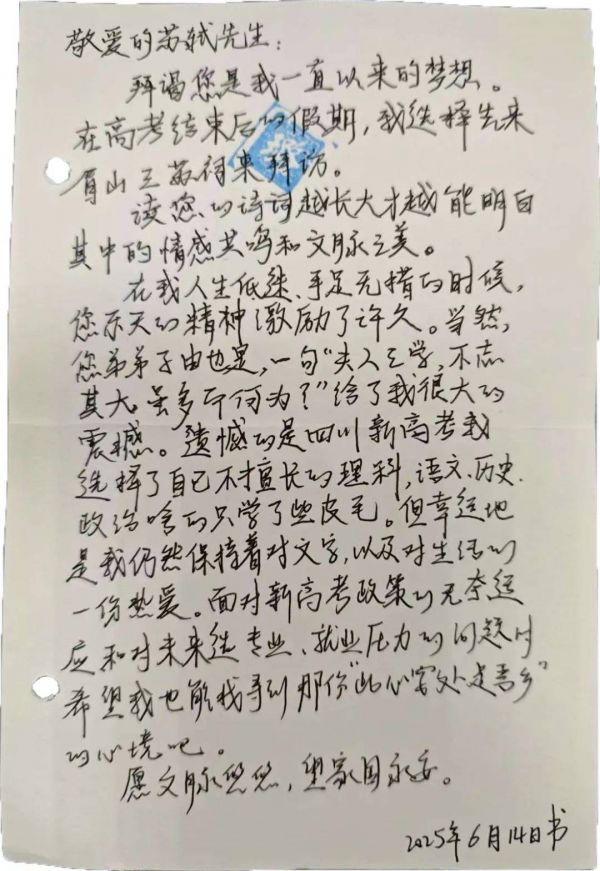 敬爱的苏轼先生:
拜谒您是我一直以来的梦想。
在高考结束后的假期,我选择先来
眉山三苏祠来拜访。
读您的诗词越长大才越能明白
其中的情感共鸣和文脉之美。
在我人生低迷、手足无措的时候,
您乐天的精神激励了许久。当然,
您弟弟子由也是,一句“夫人之学,不志
其大,虽多而何为?”给了我很大的
震撼。遗憾的是四川新高考我
选择了自己不才擅长的理科,语文、历史、
政治啥的只学了些皮毛。但幸运地
是我仍然保持着对文字,以及对生活的
一份热爱。面对新高考政策的无奈适
应和对未来选专业、就业压力的问题时
希望我也能找寻到那份“此心安处是吾乡”
的心境吧。
愿文脉悠悠,望家国永安。
2025年6月14日书